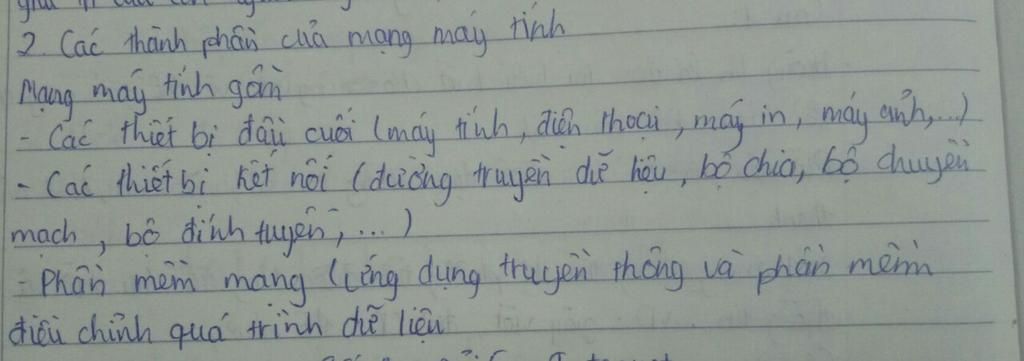 2. Các thành phần của mạng máy tính
Mạng máy tính gồm
- Các thiết bị đầu cuối (máy tính, điện thoại, máy in, máy ảnh,...)
- Các thiết bị kết nối (đường truyền dữ liệu, bộ chia, bộ chuyển
mạch, bộ định tuyến, ...)
- Phần mềm mạng (ứng dụng truyền thông và phần mềm
điều chỉnh quá trình dữ liệu